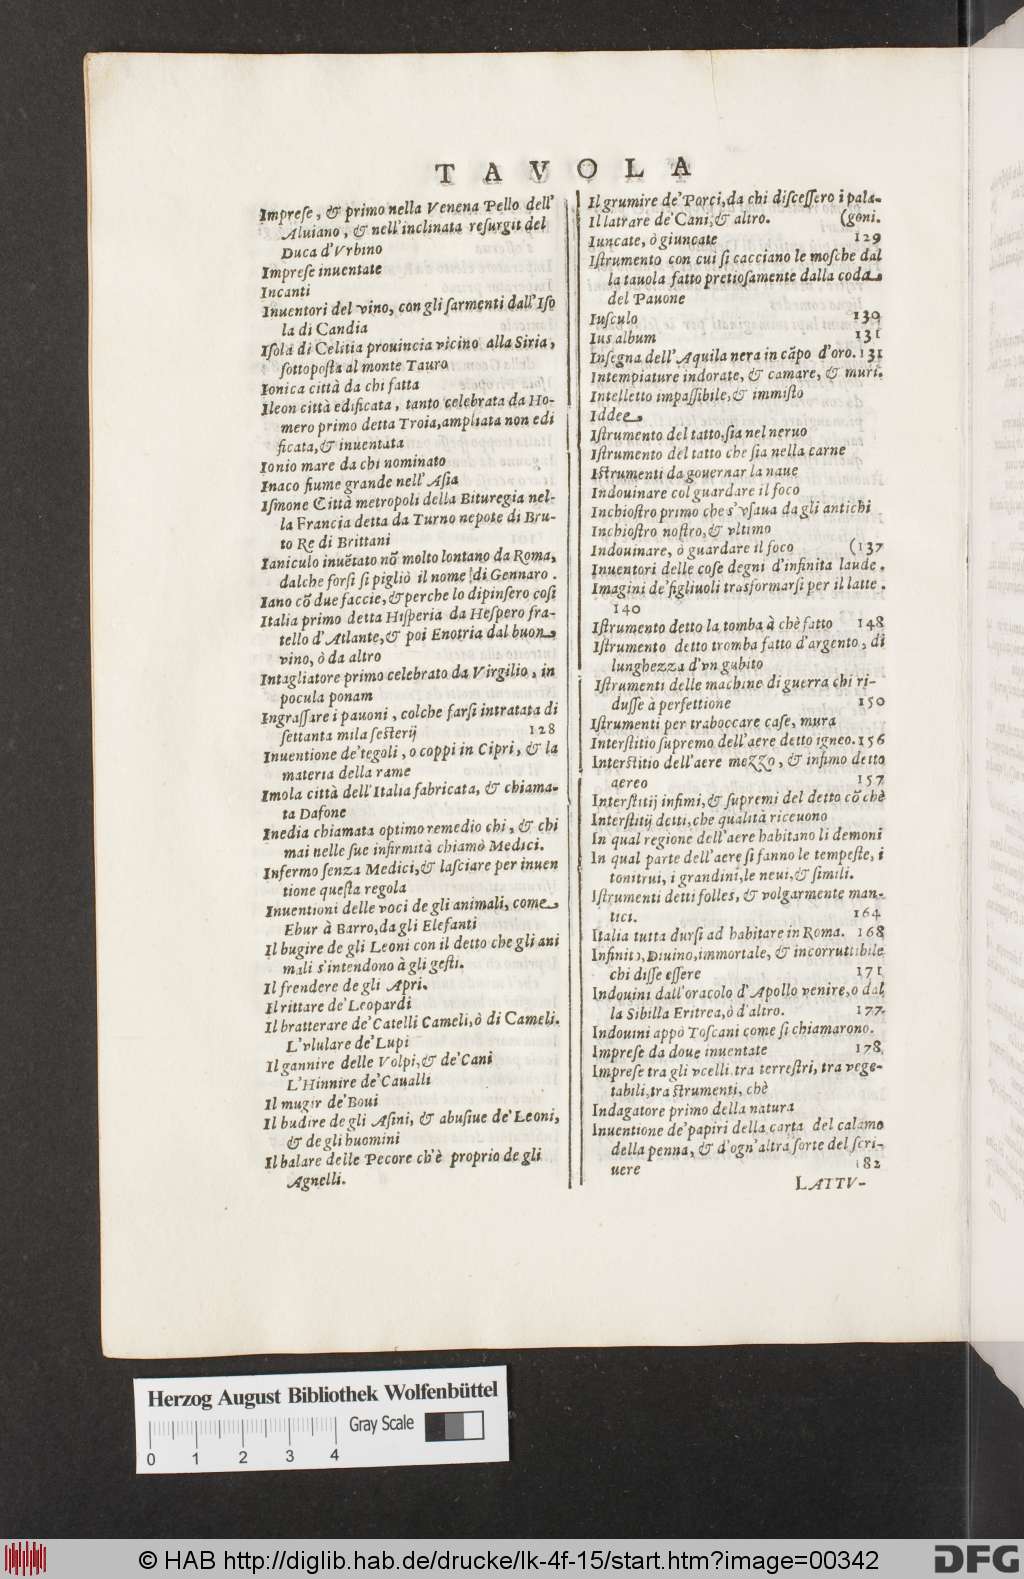 TAVOLA
Imprese, & primo nella Venena Pello dell'
Aluiano, & nell'inclinata resurgit del
Duca d'Vrbino
Imprese inuentate
Incanti
Inuentori del vino, con gli sarmenti dall'Iso
la di Candia
Isola di Celitia prouincia vicino alla Siria,
sottoposta al monte Tauro
Ionica città da chi fatta
Ileon città edificata, tanto celebrata da Ho-
mero primo detta Troia, ampliata non edi
ficata, & inuentata
Ionio mare da chi nominato
Inaco fiume grande nell'Asia
Ismone Città metropoli della Bituregia nel-
la Francia detta da Turno nepote di Bru-
to Re di Brittani
Ianiculo inuētato nō molto lontano da Roma,
dalche forsi si pigliò il nome di Gennaro.
Iano cō due faccie, & perche lo dipinsero così
Italia primo detta Hisperia da Hespero fra-
tello d'Atlante, & poi Enotria dal buon
vino, ò da altro
Intagliatore primo celebrato da Virgilio, in
pocula ponam
Ingrassare i pauoni, colche farsi intratata di
settanta mila sesterij 128
Inuentione de'tegoli, o coppi in Cipri, & la
materia della rame
Imola città dell'Italia fabricata, & chiama-
ta Dafone
Inedia chiamata optimo remedio chi, & chi
mai nelle sue infirmità chiamò Medici.
Infermo senza Medici, & lasciare per inuen
tione questa regola
Inuentioni delle voci de gli animali, come
Ebur à Barro, da gli Elefanti
Il bugire de gli Leoni con il detto che gli ani
mali s'intendono à gli gesti.
Il frendere de gli Apri.
Il rittare de'Leopardi
Il bratterare de'Catelli Cameli, ò di Cameli.
L'vlulare de'Lupi
Il gannire delle Volpi, & de'Cani
L'Hinnire de'Caualli
Il mugir de'Boui
Il budire de gli Asini, & abusiue de'Leoni,
& de gli huomini
Il balare delle Pecore ch'è proprio de gli
Agnelli.
Il grumire de'Porci, da chi discessero i pala-
Il latrare de'Cani, & altro. (goni.
Iuncate, ò giuncate 129
Istrumento con cui si cacciano le mosche dal
la tauola fatto pretiosamente dalla coda
del Pauone
Iusculo 130
Ius album 131
Insegna dell'Aquila nera in cāpo d'oro. 131
Intempiature indorate, & camare, & muri.
Intelletto impassibile, & immisto
Iddee
Istrumento del tatto, sia nel neruo
Istrumento del tatto che sia nella carne
Istrumenti da gouernar la naue
Indouinare col guardare il foco
Inchiostro primo che s'vsaua da gli antichi
Inchiostro nostro, & vltimo
Indouinare, ò guardare il foco (137
Inuentori delle cose degni d'infinita laude.
Imagini de'figliuoli trasformarsi per il latte.
140
Istrumento detto la tomba à chè fatto 148
Istrumento detto tromba fatto d'argento, di
lunghezza d'vn gubito
Istrumenti delle machine di guerra chi ri-
dusse à perfettione 150
Istrumenti per traboccare case, mura
Interstitio supremo dell'aere detto igneo. 156
Interstitio dell'aere mezzo, & infimo detto
aereo 157
Interstitij infimi, & supremi del detto cō chè
Interstitij detti, che qualità riceuono
In qual regione dell'aere habitano li demoni
In qual parte dell'aere si fanno le tempeste, i
tonitrui, i grandini, le neui, & simili.
Istrumenti detti folles, & volgarmente man-
tici. 164
Italia tutta dursi ad habitare in Roma. 168
Infinito, Diuino, immortale, & incorruttibile
chi disse essere 171
Indouini dall'oracolo d'Apollo venire, o dal
la Sibilla Eritrea, ò d'altro. 177.
Indouini appò Toscani come si chiamarono.
Imprese da doue inuentate 178.
Imprese tra gli vcelli, tra terrestri, tra vege-
tabili, tra strumenti, chè
Indagatore primo della natura
Inuentione de'papiri della carta del calamo
della penna, & d'ogn'altra sorte del scri-
uere 182
LAITV-
Herzog August Bibliothek Wolfenbüttel
Gray Scale
0 1 2 3 4
© HAB http://diglib.hab.de/drucke/lk-4f-15/start.htm?image=00342
DFG